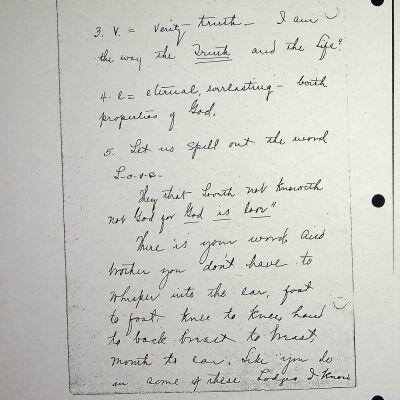 3. V. = Verity - truth - I am
the way the Truth and the Life"
4. e = eternal, everlasting - both
properties of God.
5. Let us spell out the word
L-o-v-e-
They that Loveth not Knoweth
not God for God is love"
There is your word, and
brother you don't have to
whisper into the ear, foot
to foot Knee to Knee, hand
to back breast to breast,
mouth to ear, like you do
in some of these Lodges I Know